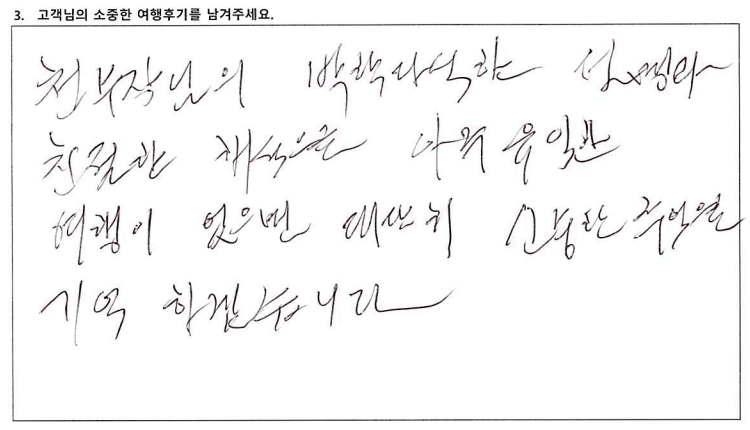 3. 고객님의 소중한 여행후기를 남겨주세요.
천부장님의 박학다식한 설명과
친절한 해석으로 아주 유익한
여행이 었으며 대단히 소중한 추억을
기억 하겠습니다